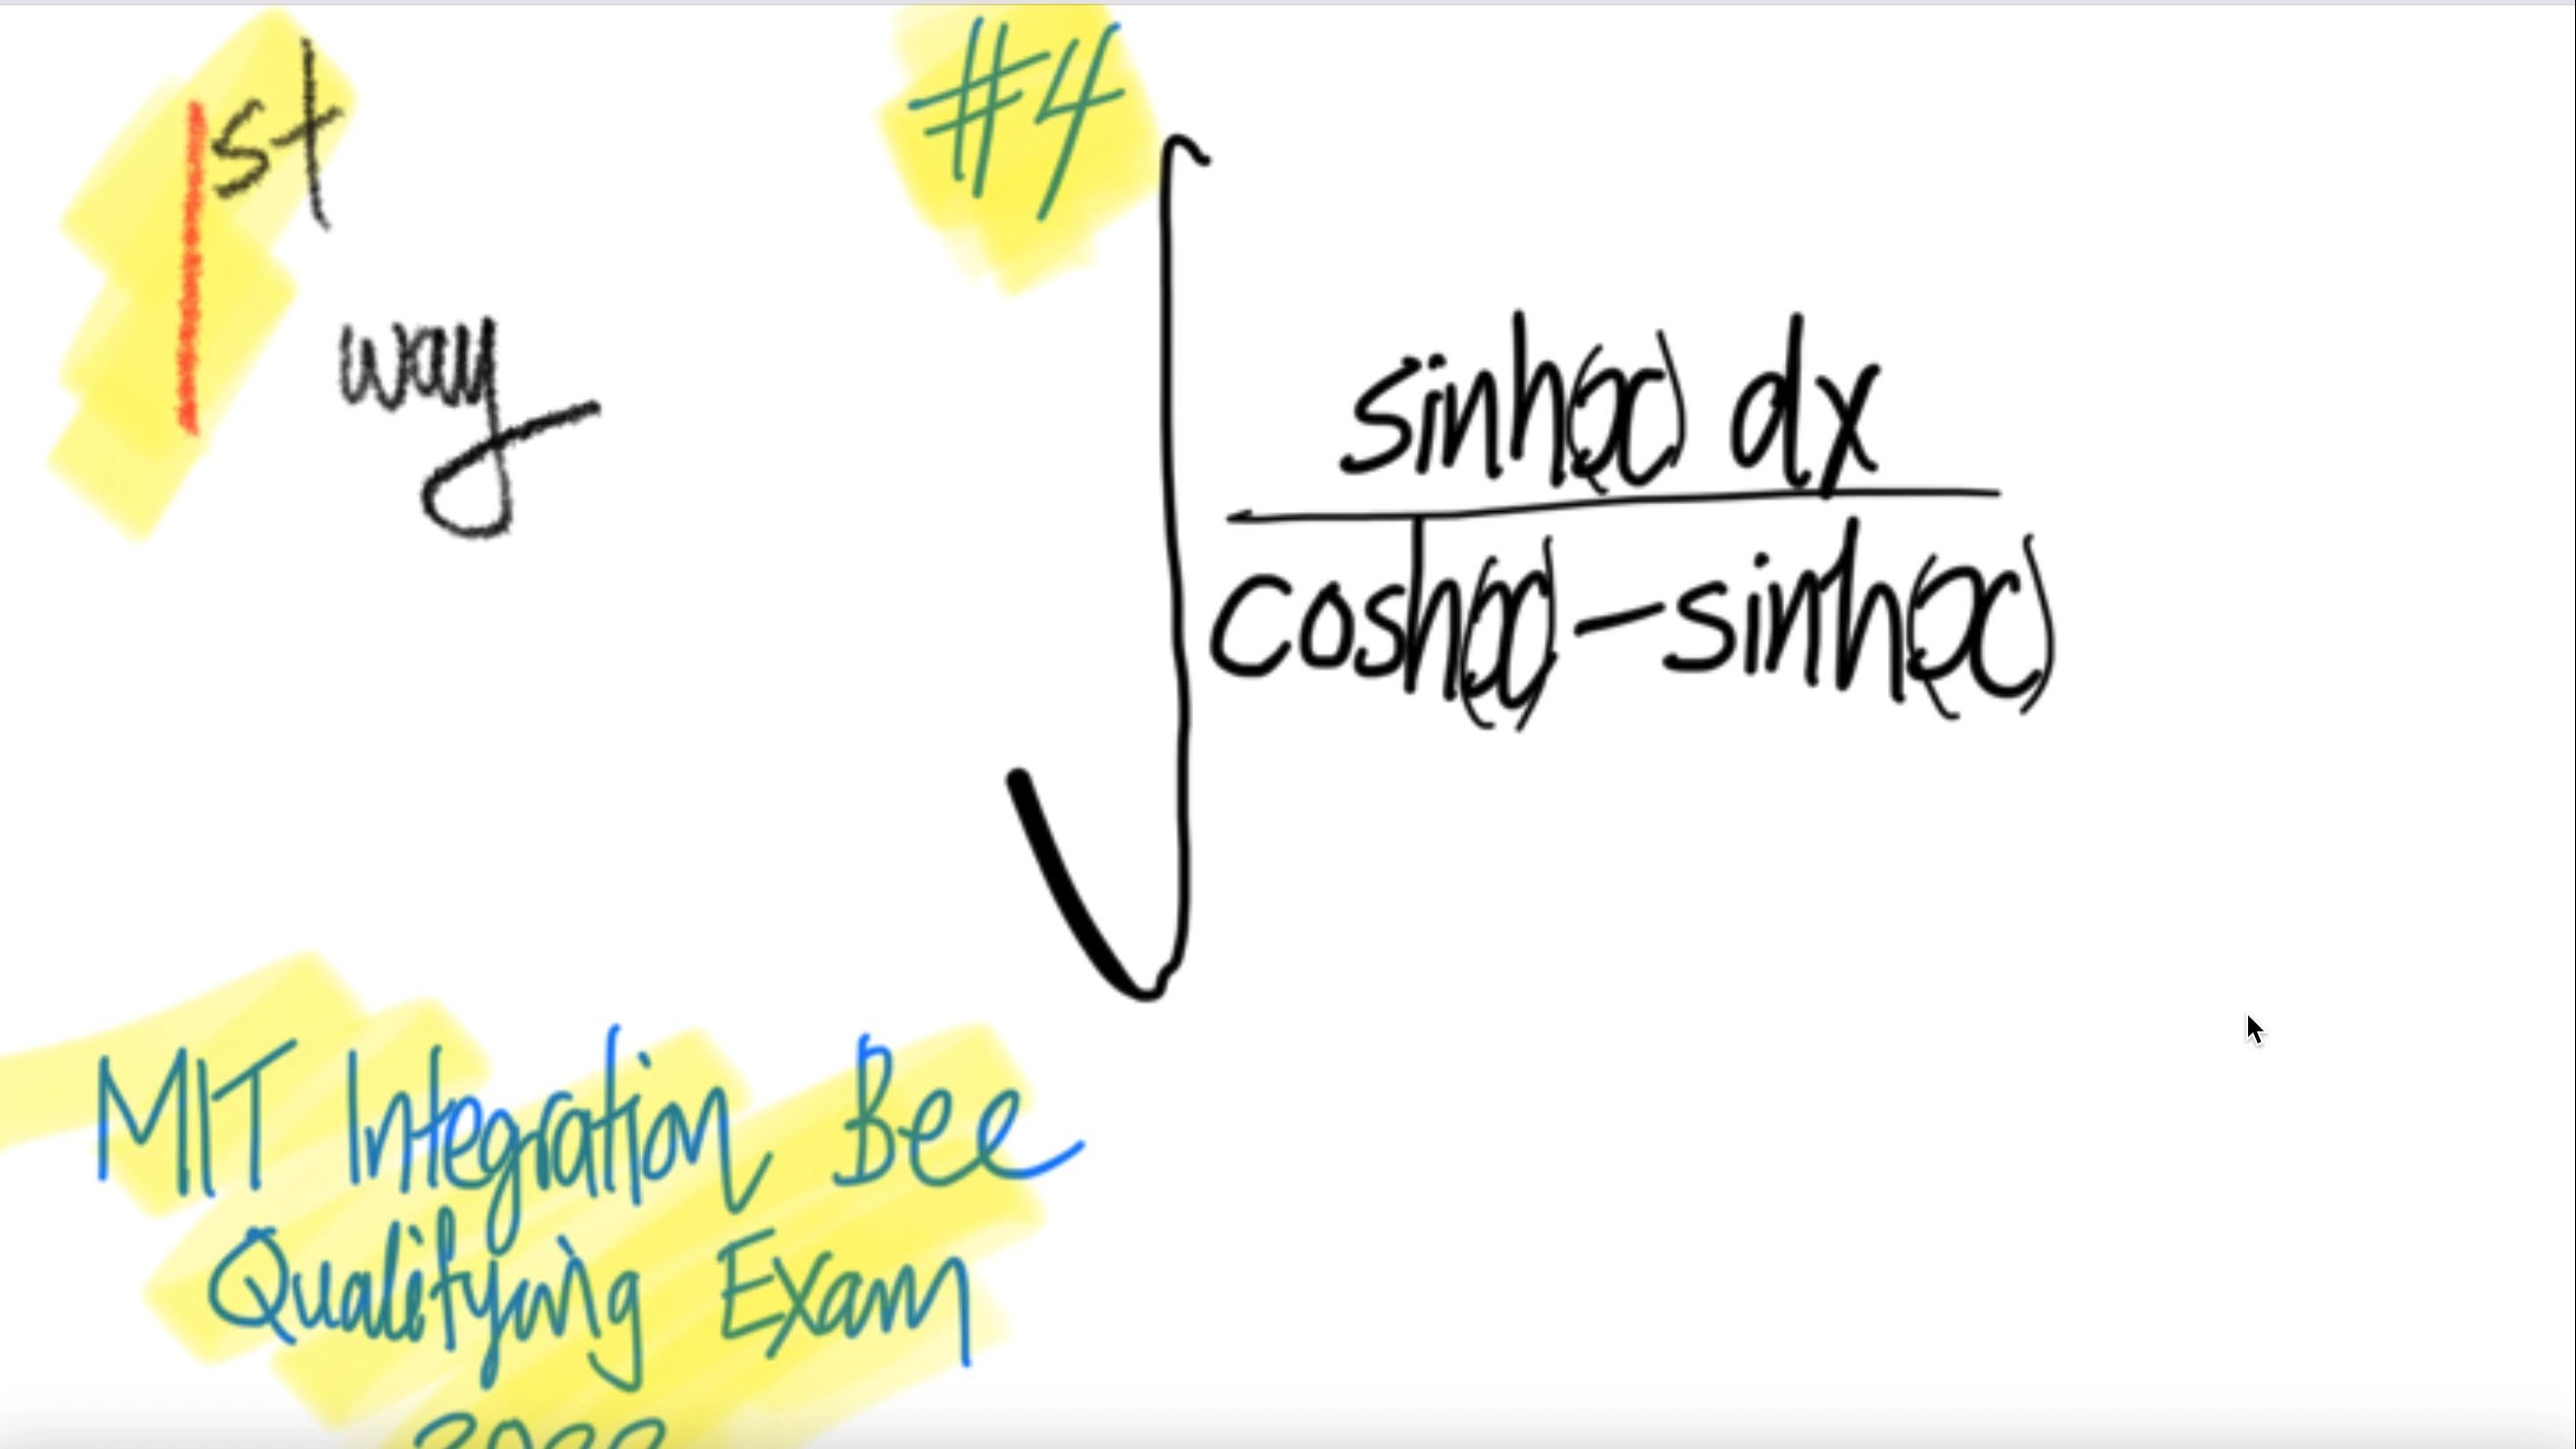 1st
way
#4
∫ sinh(x) dx
cosh(x) - sinh(x)
MIT Integration Bee
Qualifying Exam